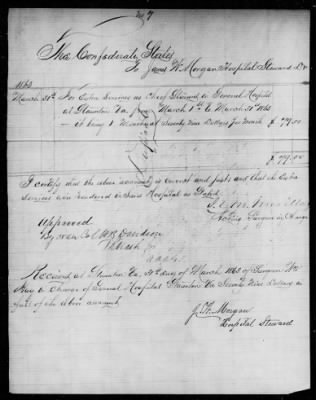 The Confederate States
To James W. Morgan Hospital Steward Dr
1863
March 31st For Extra Services as Chief Steward in General Hospital
at Staunton Va from March 1st to March 31st 1863
being 1 Month at Seventy Nine Dollars per Month $ 79.00
$ 79.00
I certify that the above account is correct and just; and that the Extra
Services were rendered in Hospital as Stated
Surgeon in Charge
Approved
By order Col Davidson
Received at Staunton Va 31st day of March 1863 of Surgeon Wm
Hay in Charge of General Hospital Staunton Va Seventy Nine Dollars in
full of the above account
J. W. Morgan
Hospital Steward